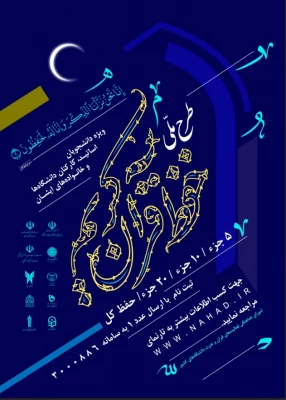 إِنَّا نَحْنُ نَزَّلْنَا الذِّكْرَ وَإِنَّا لَهُ لَحَافِظُونَ
طرح ملی
حفظ قرآن کریم
ویژه دانشجویان
اساتید، کارکنان دانشگاه‌ها
و خانواده‌های ایشان
۵ جزء / ۱۰ جزء / ۲۰ جزء / حفظ کل
ثبت نام با ارسال عدد ۱ به سامانه ۳۰۰۰۰۸۸۶
جهت کسب اطلاعات بیشتر به تارنمای
WWW.NAHAD.IR
مراجعه نمایید.